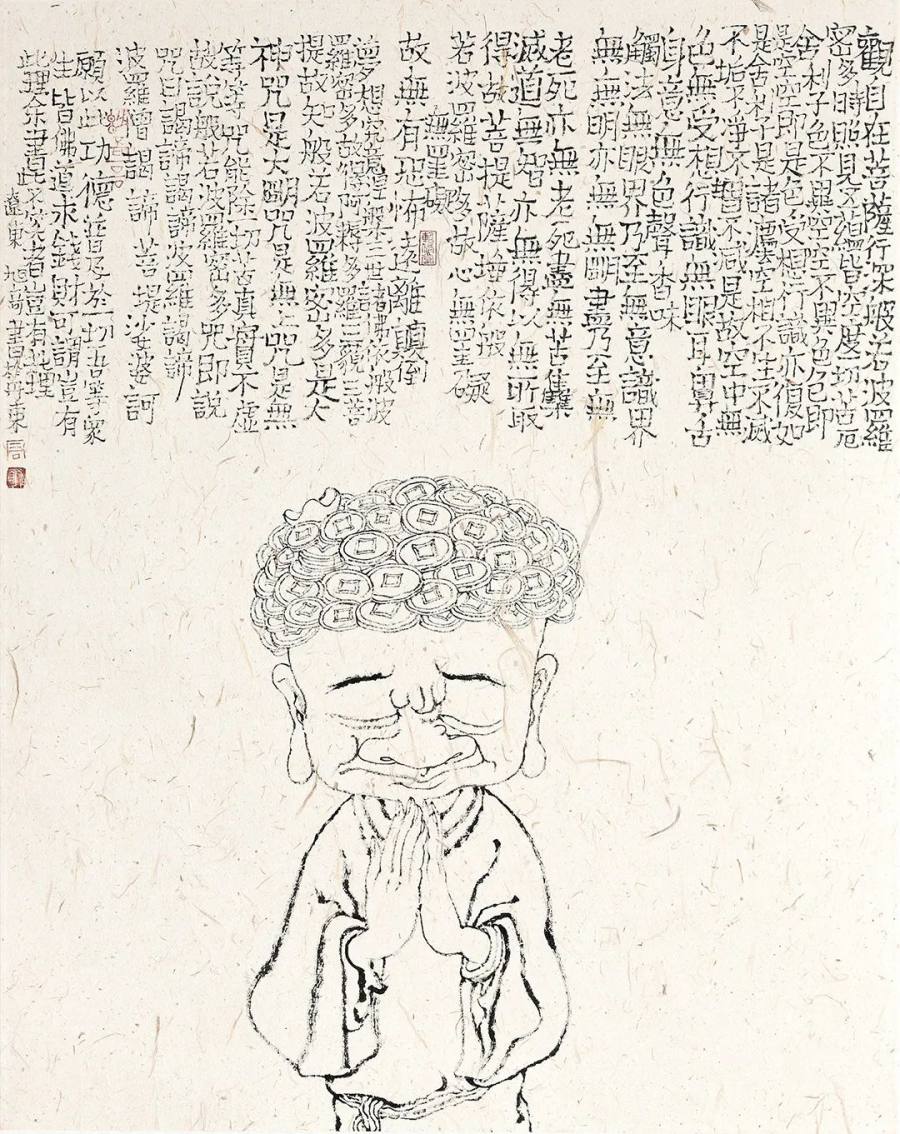 觀自在菩薩行深般若波羅
密多時照見五蘊皆空度一切苦厄
舍利子色不異空空不異色色即
是空空即是色受想行識亦復如
是舍利子是諸法空相不生不滅
不垢不淨不增不減是故空中無
色無受想行識無眼耳鼻舌
身意無色聲香味
觸法無眼界乃至無意識界
無無明亦無無明盡乃至無
老死亦無老死盡無苦集
滅道無智亦無得以無所
得故菩提薩埵依般
若波羅密多故心無罣礙
無罣礙
故無有恐怖遠離顛倒
夢想究竟涅槃三世諸佛依般波
羅密多故得阿耨多羅三藐三菩
提故知般若波羅密多是大
神咒是大明咒是無上咒是無
等等咒能除一切苦真實不虛
故說般若波羅密多咒即說
咒曰謁諦謁諦波羅謁諦
波羅僧謁諦菩提娑婆訶
願以此功德普及於一切吾等眾
生皆佛道求錢財可謂豈有
此理余書此豈有此理
遼東旭哥書丹東